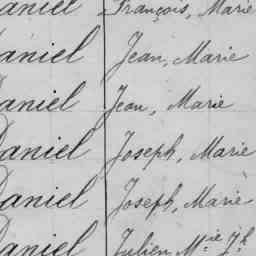 Daniel François, Marie
Daniel Jean, Marie
Daniel Jean, Marie
Daniel Joseph, Marie
Daniel Joseph, Marie
Daniel Julien, Mie Jh